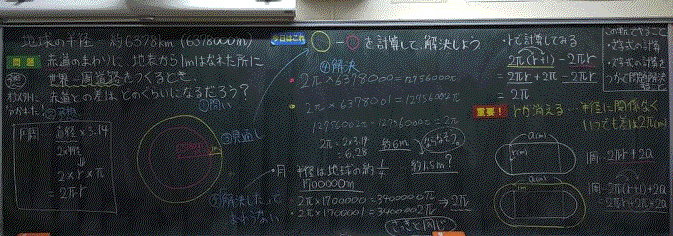 地球の半径…約6378km(6378000m)
問題 赤道のまわりに、地表から1mはなれた所に
世界一周道路をつくるとき、
赤道との差は、どのぐらいになるだろう?
①問い
円周 直径×3.14
2×半径
↓
2×r×π
=2πr
②見通し
1m
を計算して、解決しよう
④解決
2π×6378000=12756000π
2π×6378001=12756002π
12756002π-12756000π=2π
2π=2×3.14
=6.28
約6m
・月 半径は地球の約1/4
約1.5m?
1700000m
・2π×1700000=3400000π
・2π×1700001=3400002π
⇒2π
さっきと同じ
・rで計算してみる
2π(r+1)-2πr
=2πr+2π-2πr
=2π
重要! rが消える…半径に関係なく
いつでも差は2π(m)
a(m)
1周…2πr+2a
a(m)
1m
1周…2π(r+1)+2a
=2πr+2π+2a
・文字式の計算